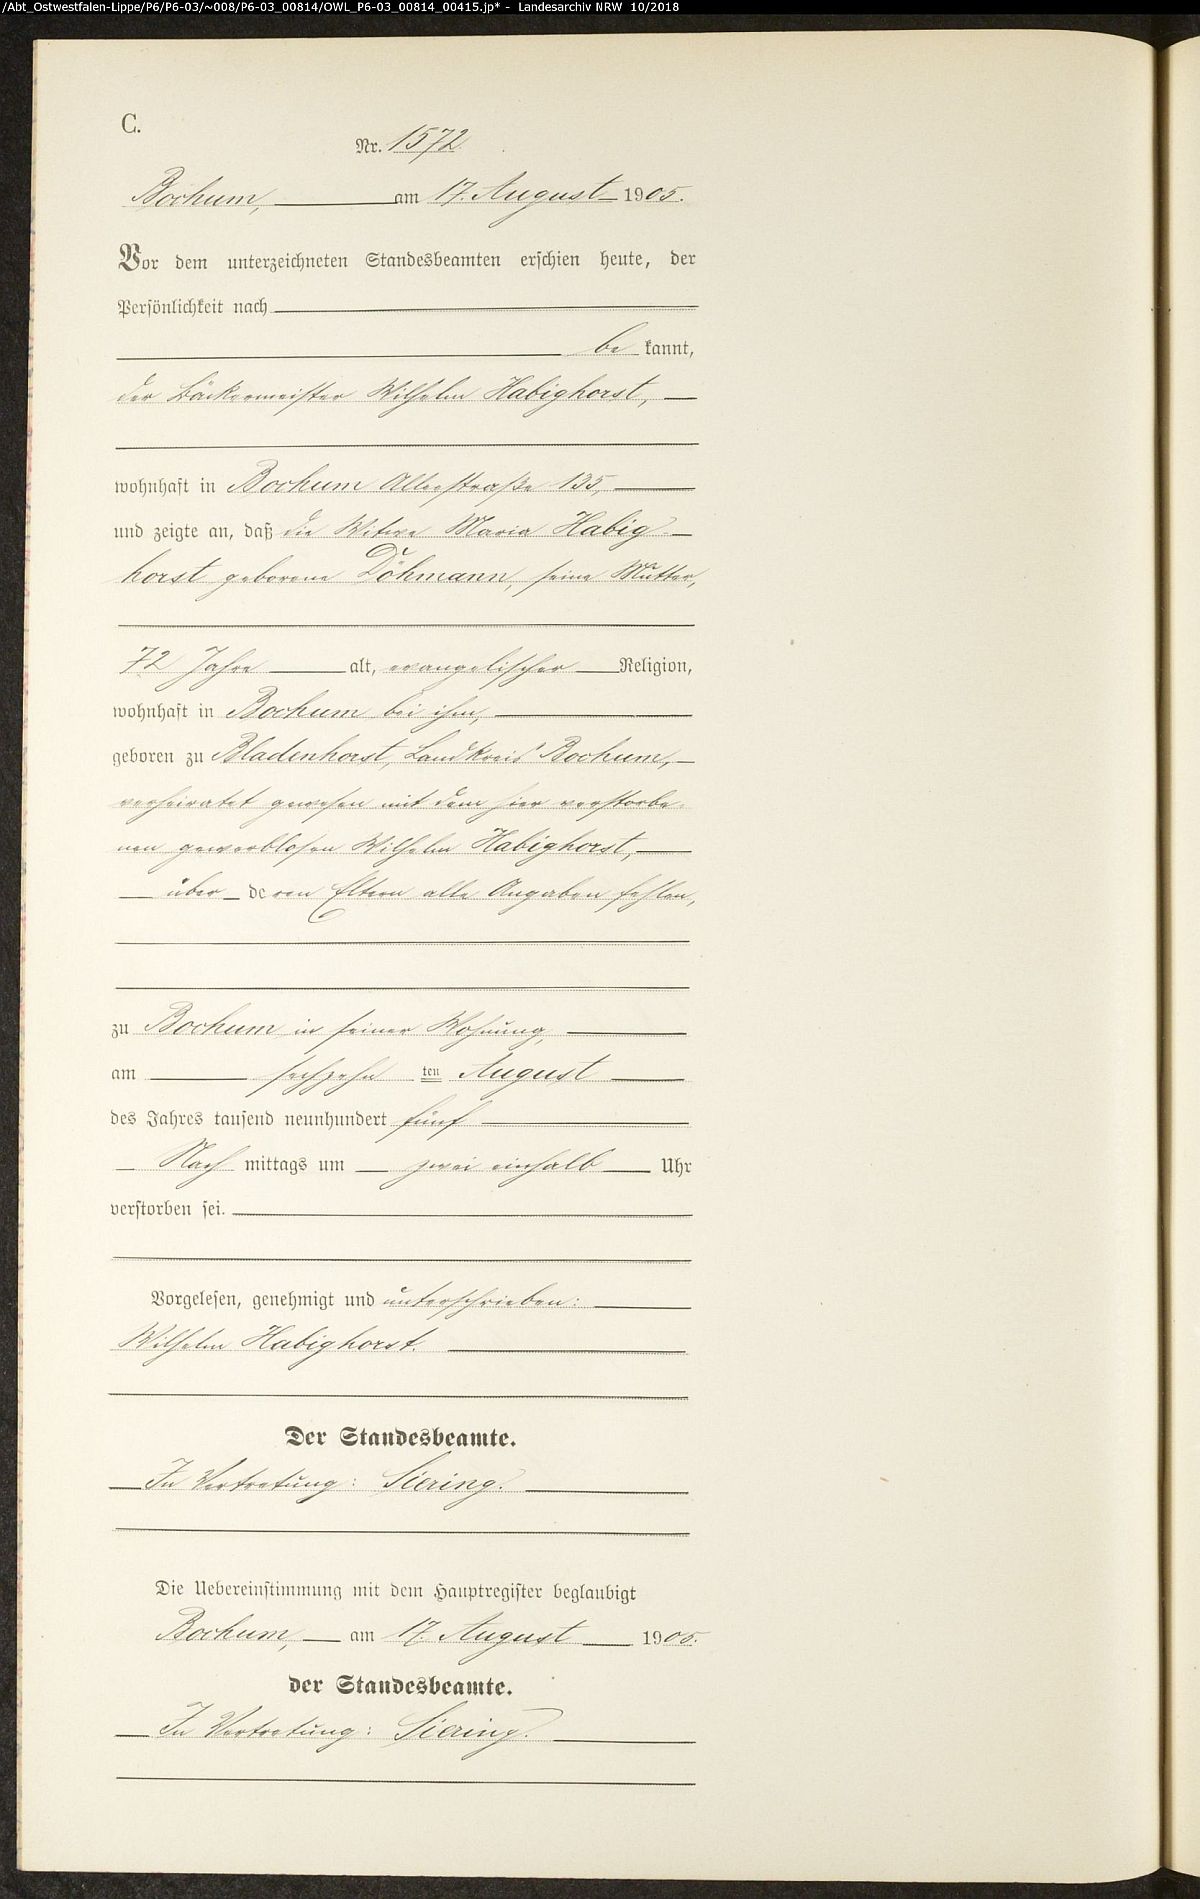 /Abt_Ostwestfalen-Lippe/P6/P6-03/~008/P6-03_00814/OWL_P6-03_00814_00415.jp* - Landesarchiv NRW 10/2018
C.
Nr. 1572
Bochum, am 17. August 1905.
Vor dem unterzeichneten Standesbeamten erschien heute, der
Persönlichkeit nach
be kannt,
der Bäckermeister Wilhelm Habighorst,
wohnhaft in Bochum Alleestraße 135,
und zeigte an, daß die Witwe Maria Habig-
horst geborene Döhmann, seine Mutter,
72 Jahre alt, evangelischer Religion,
wohnhaft in Bochum bei ihm,
geboren zu Bladenhorst, Landkreis Bochum,
verheiratet gewesen mit dem hier verstorbe-
nen gewerblosen Wilhelm Habighorst,
über deren Eltern alle Angaben fehlen,
zu Bochum in seiner Wohnung,
am sechzehn ten August
des Jahres tausend neunhundert fünf
Nach mittags um zwei einhalb Uhr
verstorben sei.
Vorgelesen, genehmigt und unterschrieben:
Wilhelm Habighorst.
Der Standesbeamte.
In Vertretung: Siering.
Die Uebereinstimmung mit dem Hauptregister beglaubigt
Bochum, am 17. August 1905.
der Standesbeamte.
In Vertretung: Siering.